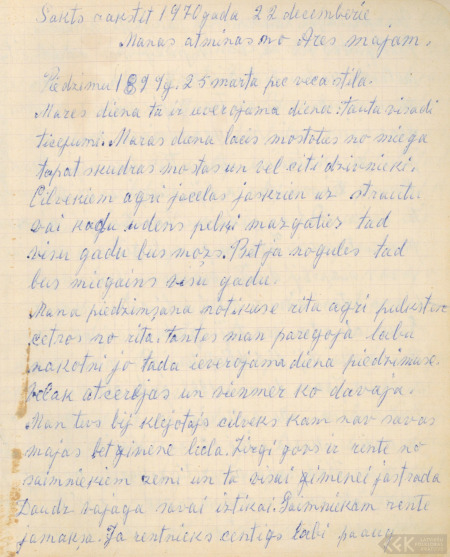 Sākts rakstīt 1970 gada 22 decemberie
Manas atminas no Ares majam.
Piedzimu 1899g. 25 marta pec veca stila.
Mares diena tā ir uverojama diena. tauta visadi
ticejumi. Maras diena lacis mostotas no miega
tapat skudras mostas un vel citi dzivnieki.
Cilvekiem agri jacelas jaskrien uz strautu
vai kādu udens pelķi mazgaties tad
visu gadu bus mozs. Bet ja nogules tad
bus miegains visu gadu.
Mana piedzimsana notikuse rita agri pulksten
cetros no rita. tantes man paregoja labu
nakotni jo tada ieverojama diena piedzimuse.
Velak atcerejas un vienmer ko davaja.
Man tevs bij klejotajs cilveks kam nav savas
majas bet gimene liela. Zirgi govs ir rente no
saimniekiem zemi un ta visai gimenei jastrada
Daudz vajaga savai iztikai. Saimniekam rente
jamaksa. Ja rentnieks centigs labi paaug